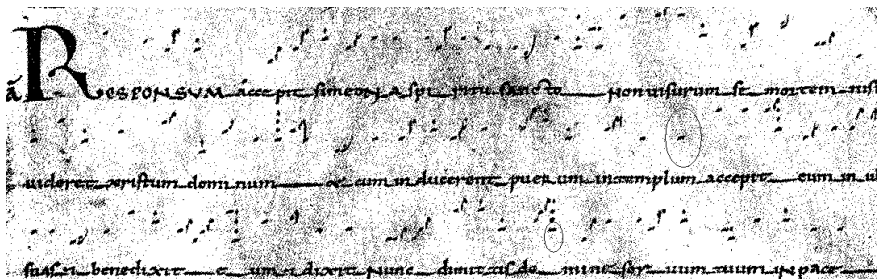 RESPONSUM accepit simeon A spiritu sancto Non uisurum se mortem nisi
uideret christum dominum et cum inducerent puerum intemplum accepit eum in ul
suas et benedixit eum et dixit Nunc dimittis domine seruum tuum IN pace